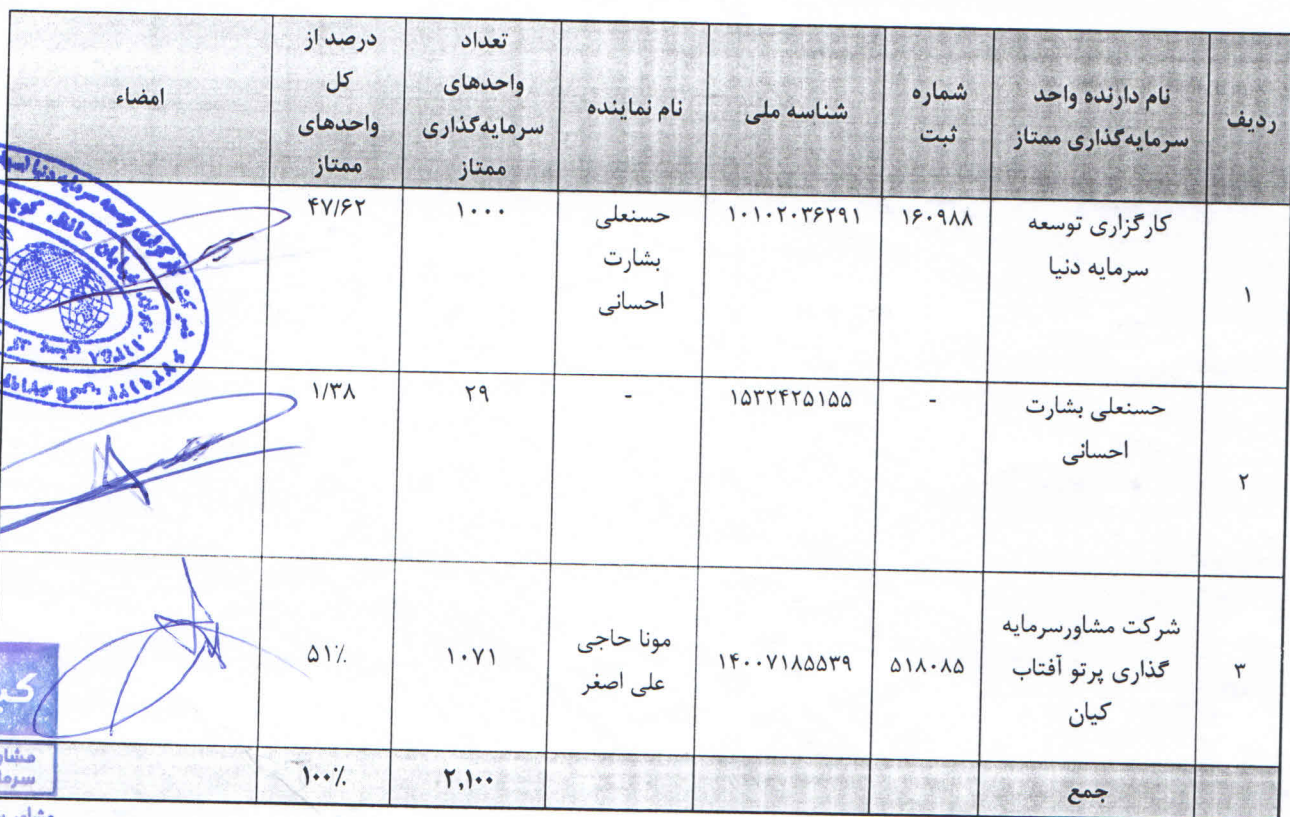 ردیف
نام دارنده واحد
سرمایه‌گذاری ممتاز
شماره
ثبت
شناسه ملی
نام نماینده
تعداد
واحدهای
سرمایه‌گذاری
ممتاز
درصد از
کل
واحدهای
ممتاز
امضاء
۱
کارگزاری توسعه
سرمایه دنیا
۱۶۰۹۸۸
۱۰۱۰۲۰۳۶۲۹۱
حسنعلی
بشارت
احسانی
۱۰۰۰
۴۷/۶۲
۲
حسنعلی بشارت
احسانی
-
۱۵۳۲۴۲۵۱۵۵
-
۲۹
۱/۳۸
۳
شرکت مشاورسرمایه
گذاری پرتو آفتاب
کیان
۵۱۸۰۸۵
۱۴۰۰۷۱۸۵۵۳۹
مونا حاجی
علی اصغر
۱۰۷۱
۵۱٪
جمع
۲,۱۰۰
۱۰۰٪